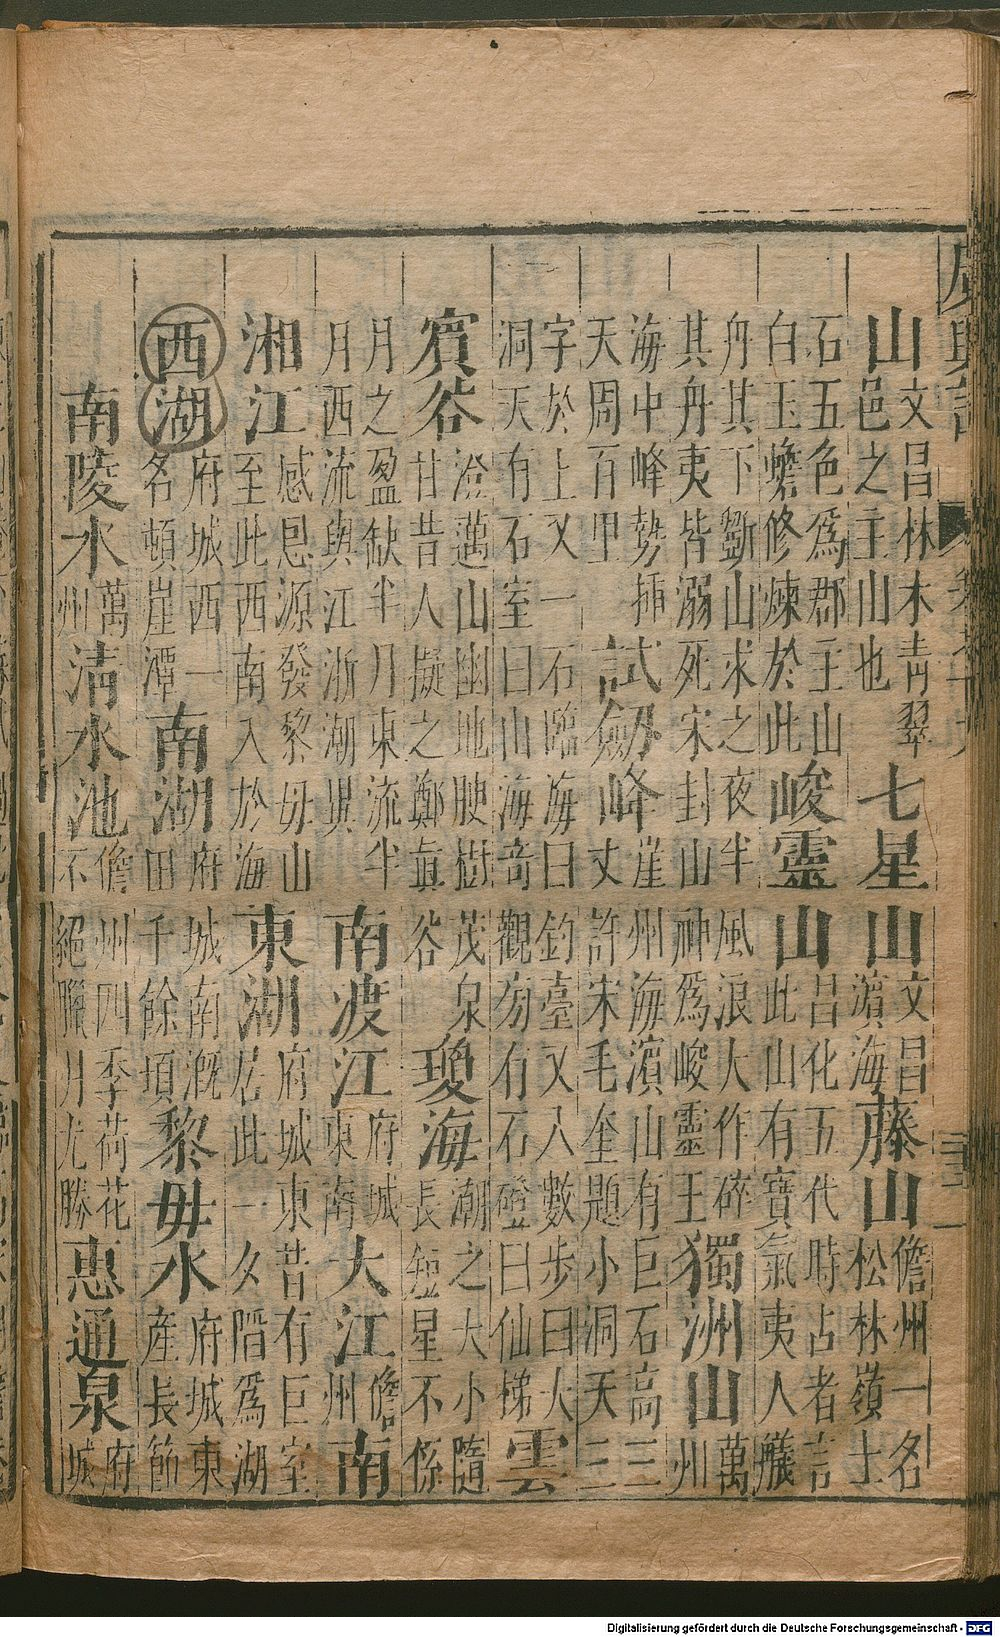 廣輿記
山文昌林木青翠邑之主山也七星山文昌濵海藤山儋州一名松林嶺土
石五色爲郡主山白玉蟾修煉於此峻靈山昌化五代時占者言此山有寶氣夷人艤
舟其下斸山求之夜半風浪大作碎其舟夷皆溺死宋封山神爲峻靈王獨洲山萬州
海中峰勢揷天周百里試劒峰崖州海濵山有巨石高三丈許宋毛奎題小洞天三
字於上又一石臨海曰釣臺又八數步曰大洞天有石室曰山海奇觀旁有石磴曰仙梯雲
賔谷澄邁山幽地腴樹茂泉甘昔人擬之鄭眞谷瓊海潮之大小隨長短星不係
月之盈缺半月東流半月西流與江浙潮異南渡江府城東南大江儋州南
湘江感恩源發黎毋山至此西南入於海東湖府城東昔有巨室居此一夕陷爲湖
西湖府城西一名頓崖潭南湖府城南溉田千餘頃黎毋水府城東產長節
南陵水萬州清水池儋州四季荷花不絕臘月尤勝惠通泉府城
Digitalisierung gefördert durch die Deutsche Forschungsgemeinschaft - DFG